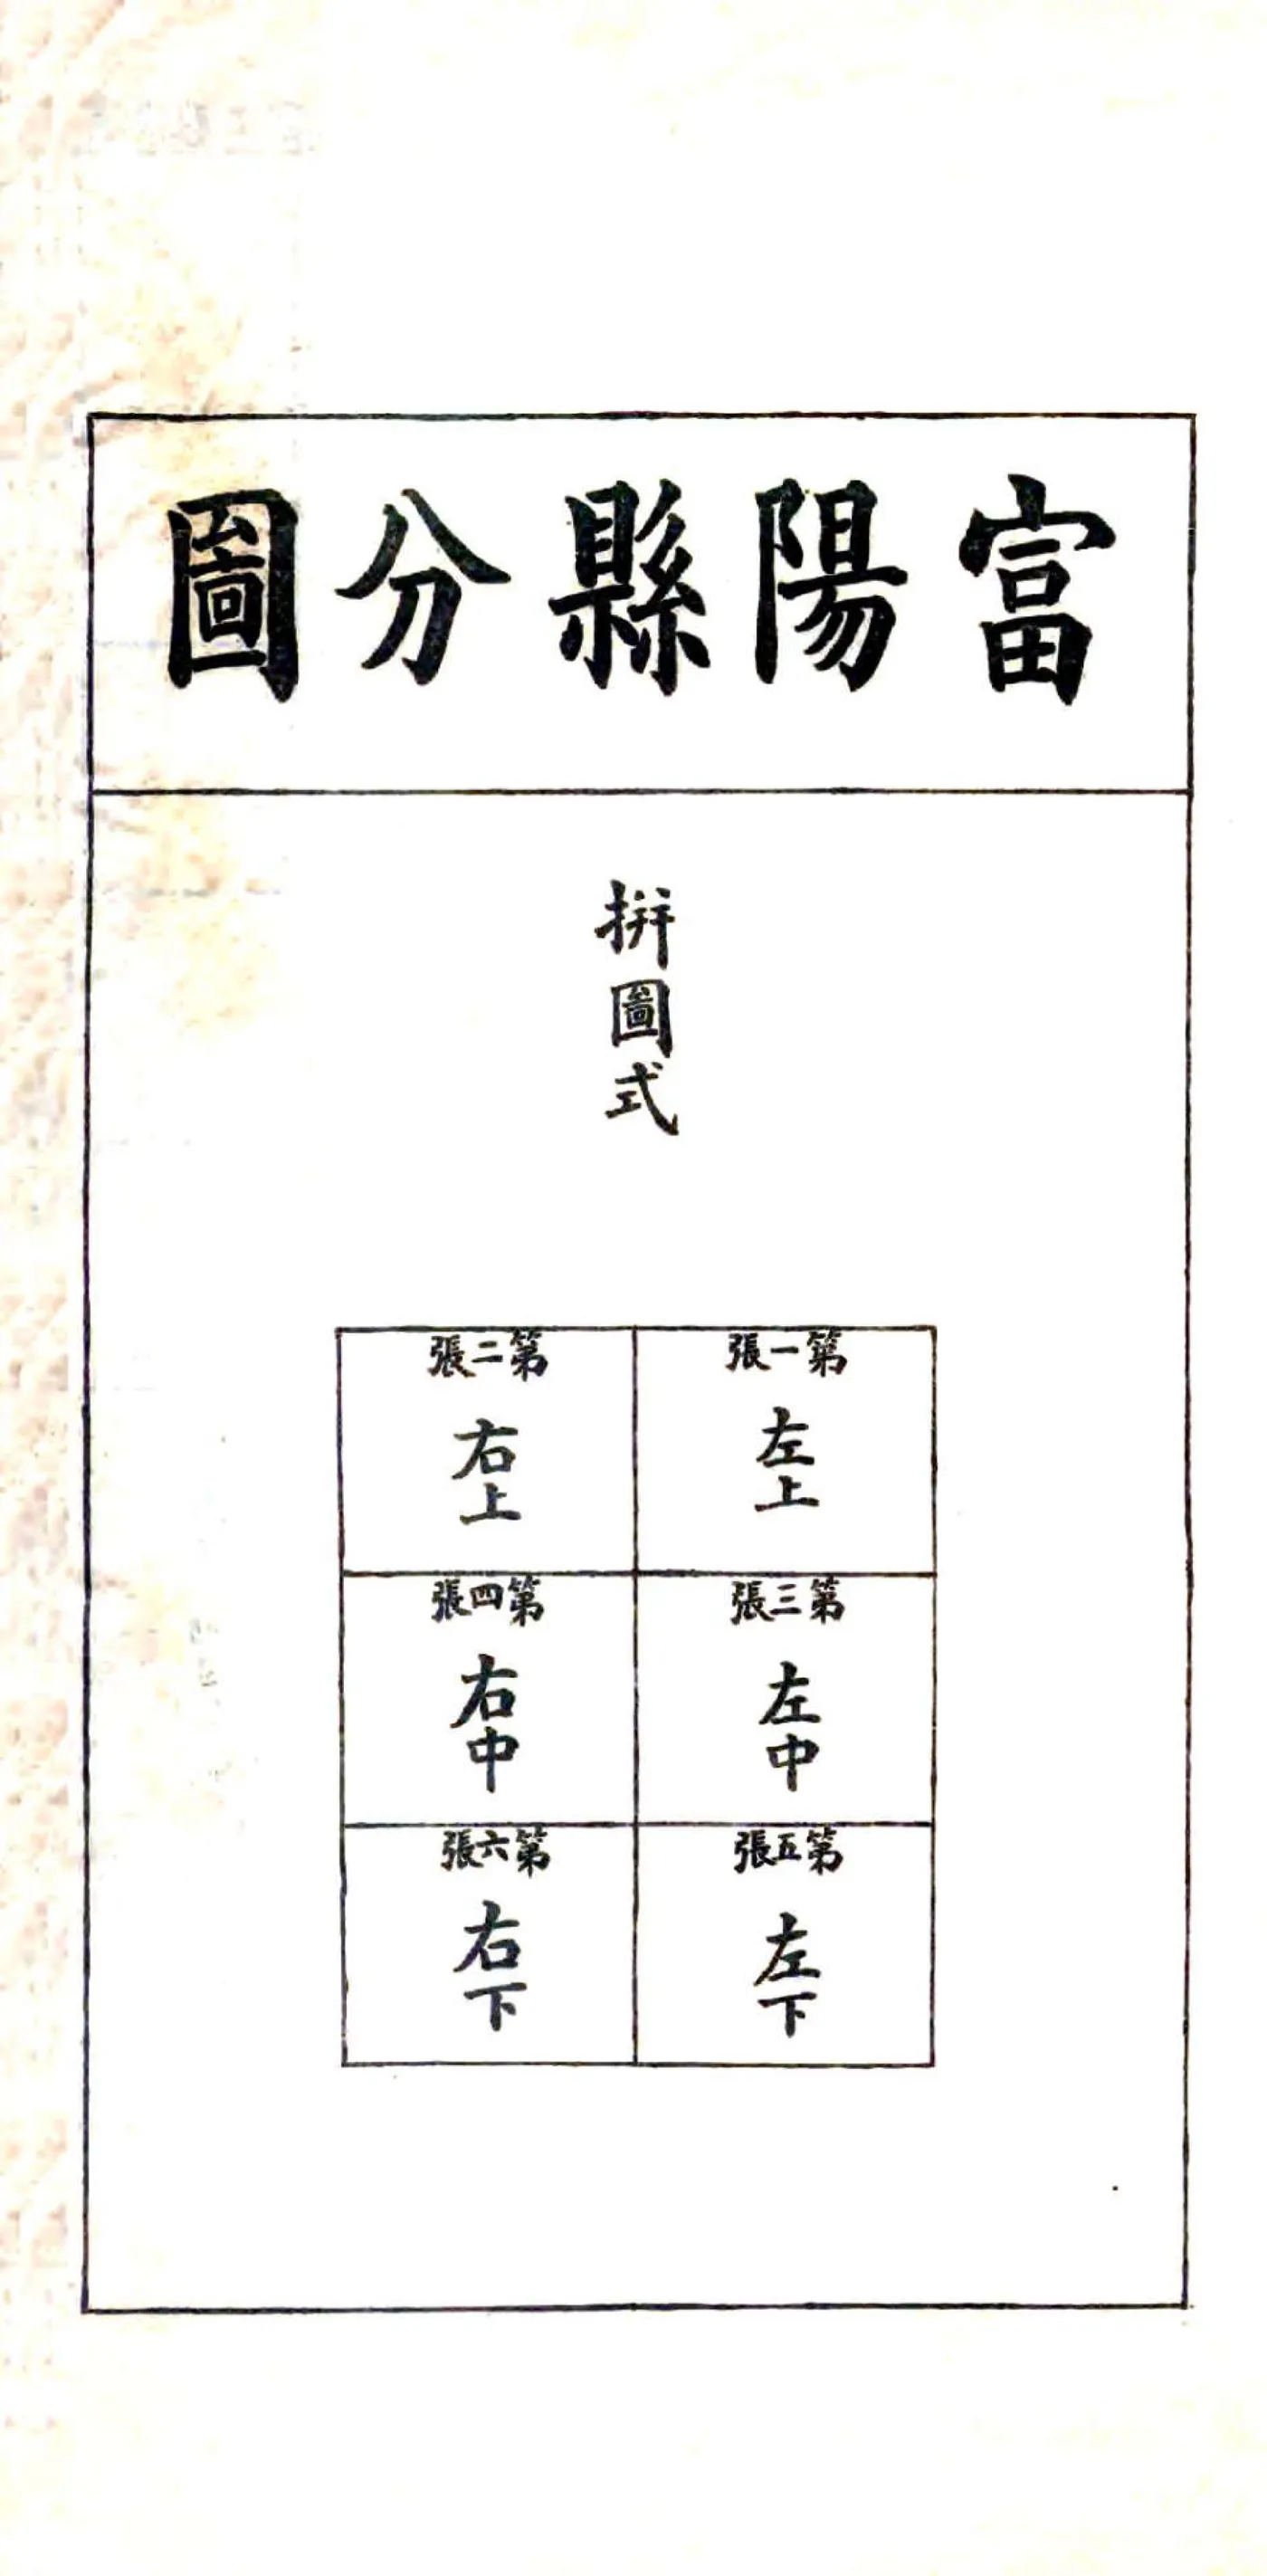 富陽縣分圖
拼圖式
第一張
左上
第二張
右上
第三張
左中
第四張
右中
第五張
左下
第六張
右下